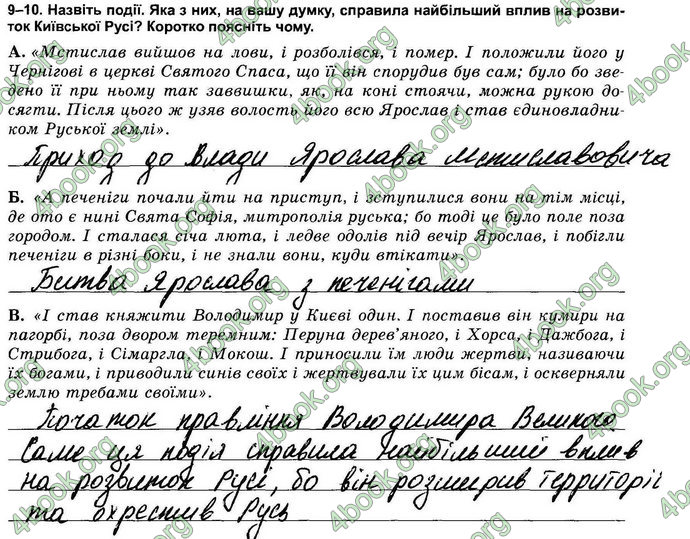 9–10. Назвіть події. Яка з них, на вашу думку, справила найбільший вплив на розви-
ток Київської Русі? Коротко поясніть чому.
А. «Мстислав вийшов на лови, і розболівся, і помер. І положили його у
Чернігові в церкві Святого Спаса, що її він спорудив був сам; було бо зве-
дено її при ньому так заввишки, як, на коні стоячи, можна рукою до-
сягти. Після цього ж узяв волость його всю Ярослав і став єдиновладни-
ком Руської землі».
Прихід до влади Ярослава Мстиславовича
Б. «А печеніги почали йти на приступ, і зступилися вони на тім місці,
де ото є нині Свята Софія, митрополія руська; бо тоді це було поле поза
городом. І сталася січа люта, і ледве одолів під вечір Ярослав, і побігли
печеніги в різні боки, і не знали вони, куди втікати».
Битва Ярослава з печенігами
В. «І став княжити Володимир у Києві один. І поставив він кумири на
пагорбі, поза двором теремним: Перуна дерев’яного, і Хорса, і Дажбога, і
Стрибога, і Сімаргла, і Мокош. І приносили їм люди жертви, називаючи
їх богами, і приводили синів своїх і жертвували їх цим бісам, і оскверняли
землю требами своїми».
Початок правління Володимира Великого
Саме ця подія справила найбільший вплив
на розвиток Русі, бо він розширив территорії
та охрестив Русь
4book.org